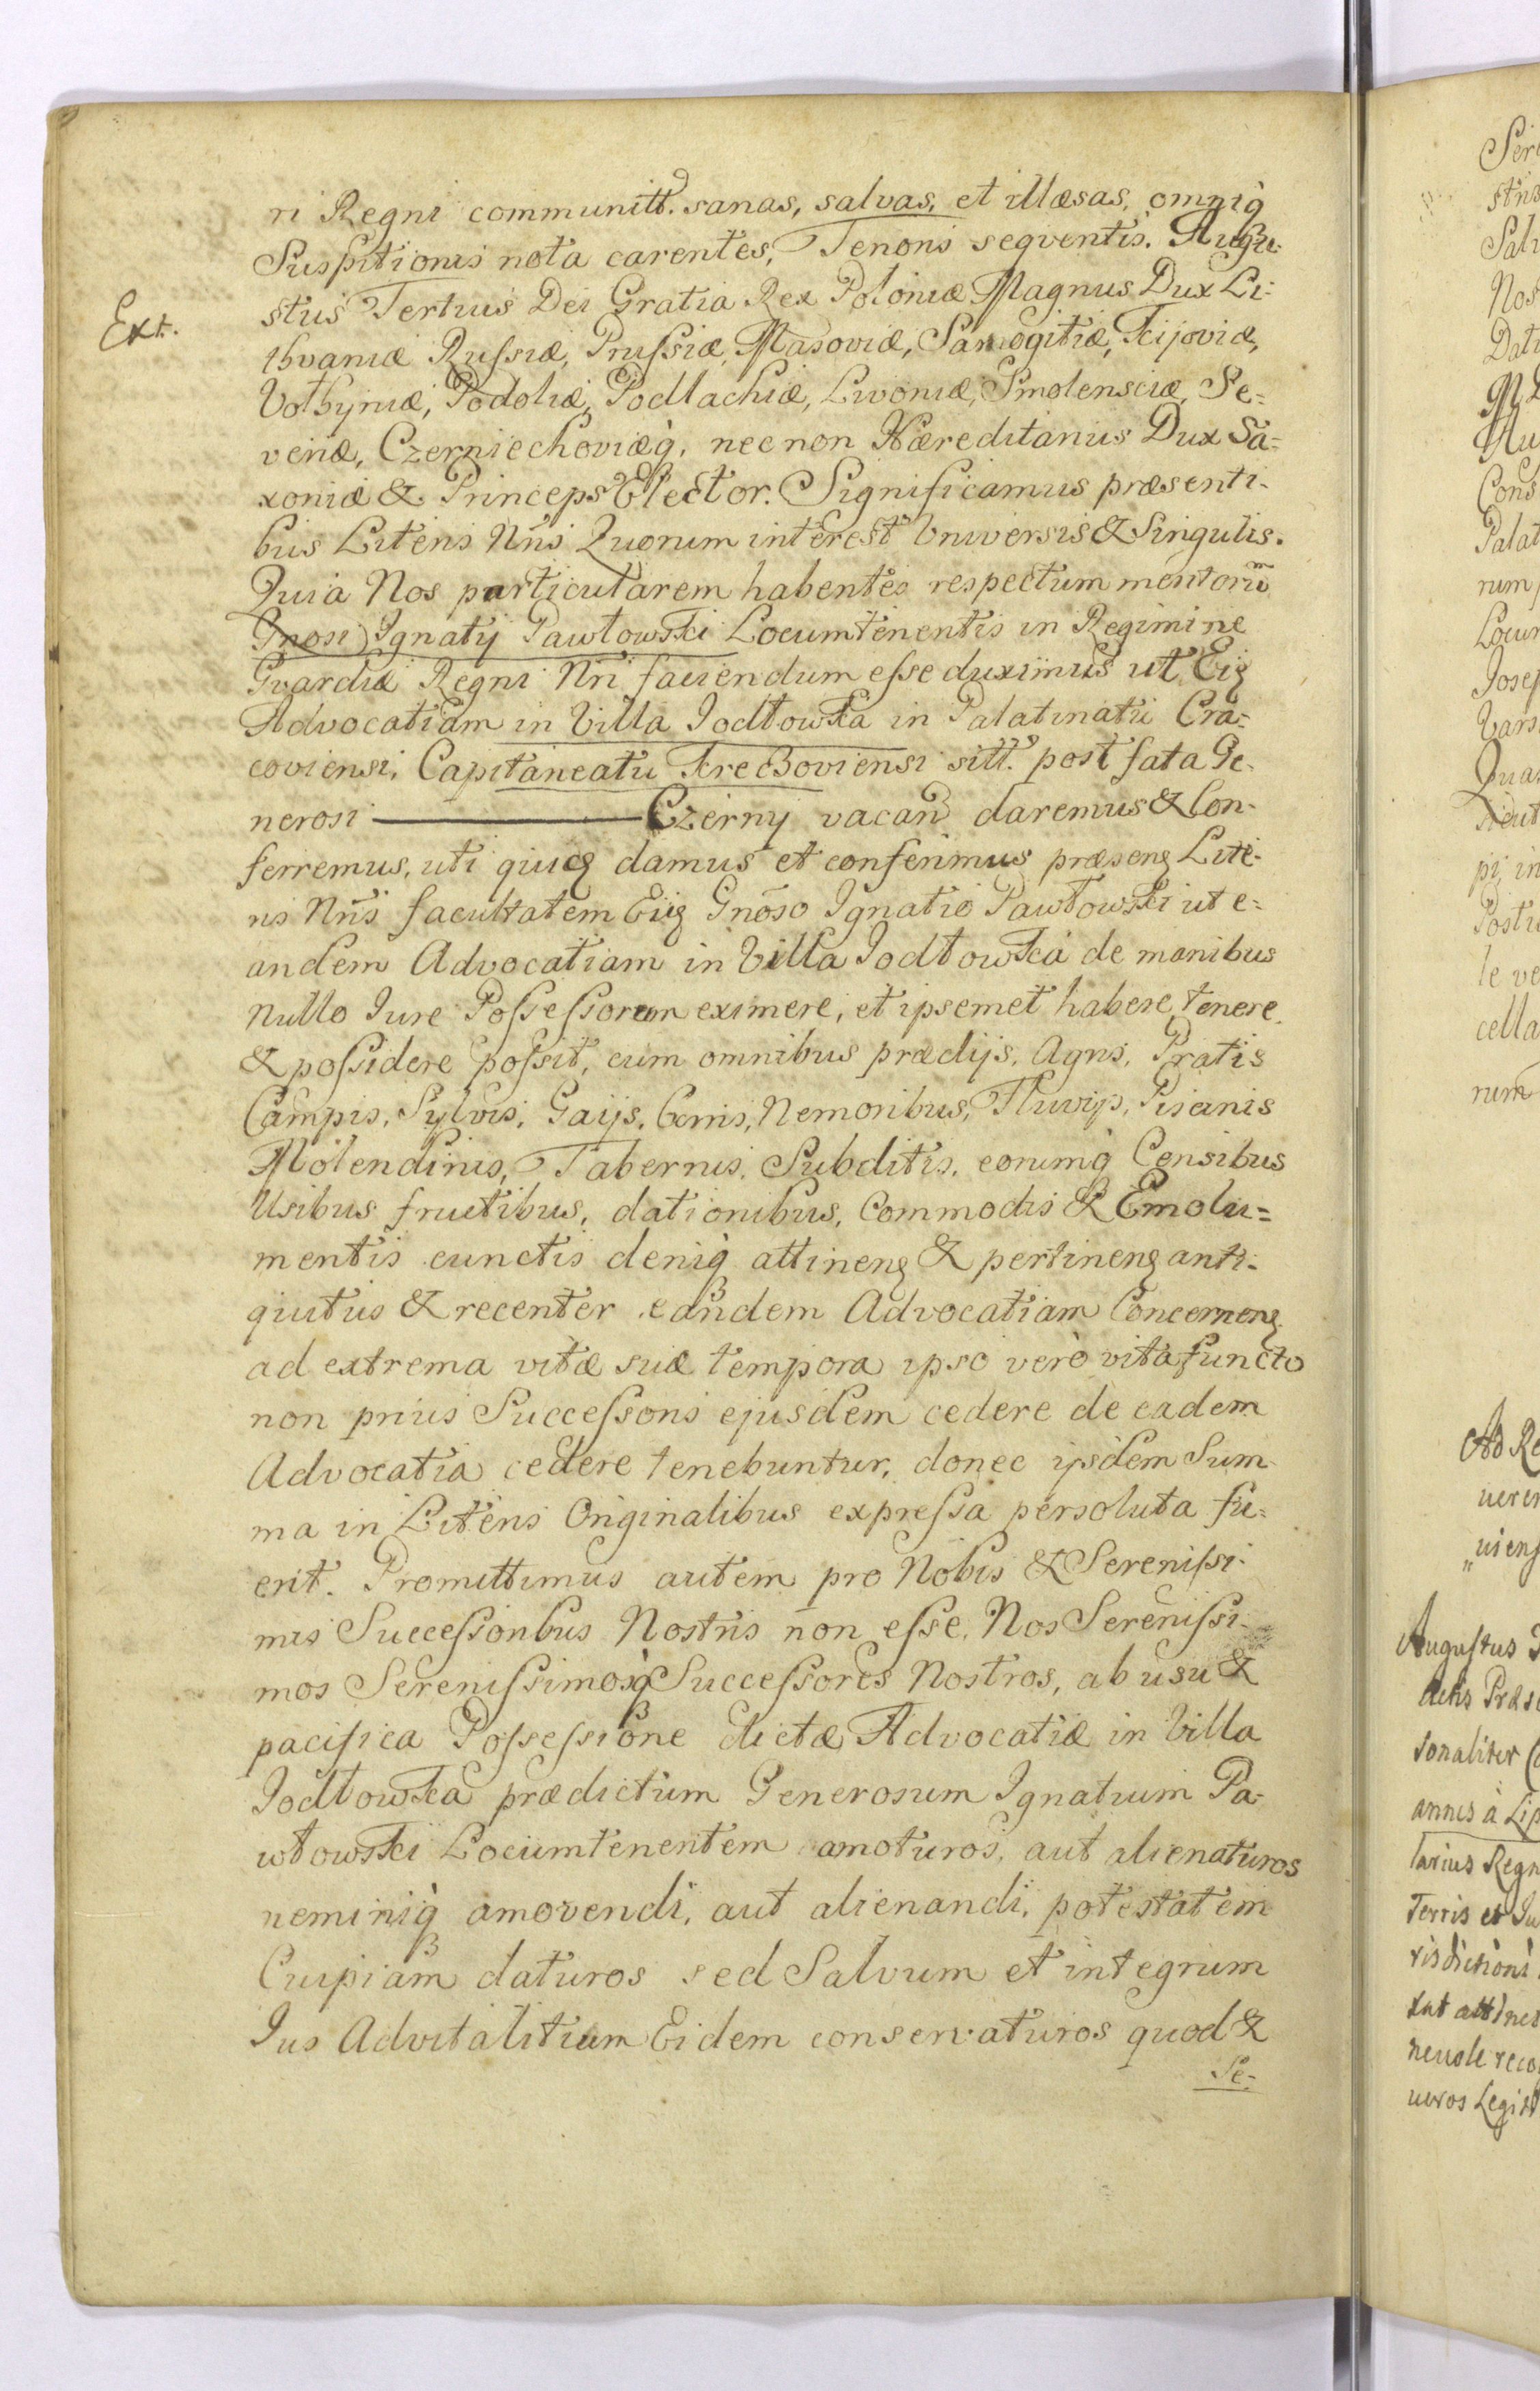 ri Regni communitt. sanas, salvas, et illæsas, omniq̃
Suspitionis nota carentes, Tenoris seqventis. Augu-
Ext.
stus Tertius Dei Gratia Rex Poloniæ Magnus Dux Li-
thvaniæ Russiæ, Prussiæ, Masoviæ, Samogitiæ, Kijoviæ,
Volhyniæ, Podoliæ, Podlachiæ, Livoniæ, Smolensciæ, Se-
veriæ, Czerniechoviæq̃, nec non Hæreditarius Dux Sa-
xoniæ & Princeps Elector. Significamus præsenti-
bus Literis Nr̃is Quorum interest Universis & Singulis.
Quia Nos particularem habentes respectum meritorũ
Gnosi Ignatij Pawłowski Locumtenentis in Regimine
Gvardiæ Regni Nr̃i faciendum esse duximus ut Eiꝫ
Advocatiam in Villa Jodłowka in Palatinatu Cra-
coviensi, Capitaneatu Kreczoviensi sitt. post fata Ge-
nerosi ——— Czerny vacañ daremus & Con-
ferremus, uti quidem damus et conferimus præsenꝫ Lite-
ris Nr̃is facultatem Eiꝫ Gnõso Ignatio Pawłowski ut e-
andem Advocatiam in Villa Jodłowka de manibus
nullo Jure Possessorum eximere, et ipsemet habere, tenere
& possidere possit, cum omnibus prædijs, Agris, Pratis
Campis, Sylvis, Gaijs, Borris, Nemoribus, Fluvijs, Piscinis
Molendinis, Tabernis, Subditis, eorumq̃ Censibus
Usibus fructibus, dationibus, Commodis & Emolu-
mentis cunctis deniq̃ attinenꝫ & pertinenꝫ anti-
quitus & recenter eandem Advocatiam Concernenꝫ
ad extrema vitæ suæ tempora ipso verò vita functo
non prius Successoris ejusdem cedere de eadem
Advocatia cedere tenebuntur, donec ijsdem Sum-
ma in Literis Originalibus expressa persoluta fu-
erit. Promittimus autem pro Nobis & Serenissi-
mis Successoribus Nostris non esse, Nos Serenissi-
mos Serenissimosq̃ Successores Nostros, ab usu &
pacifica Possessione dictæ Advocatiæ in Villa
Jodłowka prædictum Generosum Ignatium Pa-
włowski Locumtenentem amoturos, aut alienaturos
neminiq̃ amovendi, aut alienandi, potestatem
Cuipiam daturos sed Salvum et integrum
Jus Advitalitium Eidem conservaturos quod &
Se-